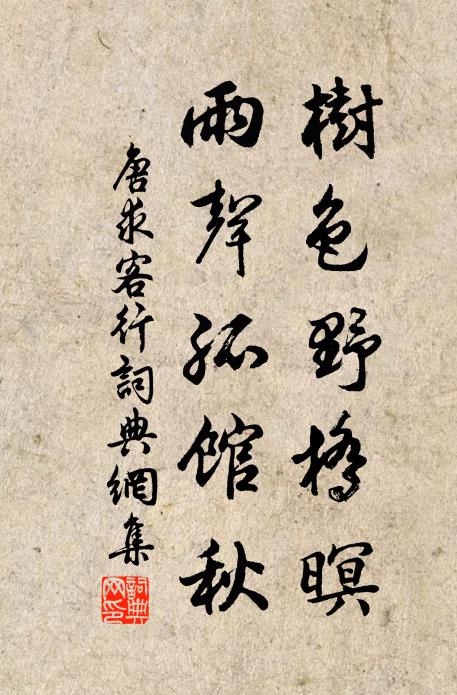 樹色野橋暝
雨聲孤館秋
唐求客行詞典網集
詞典網印